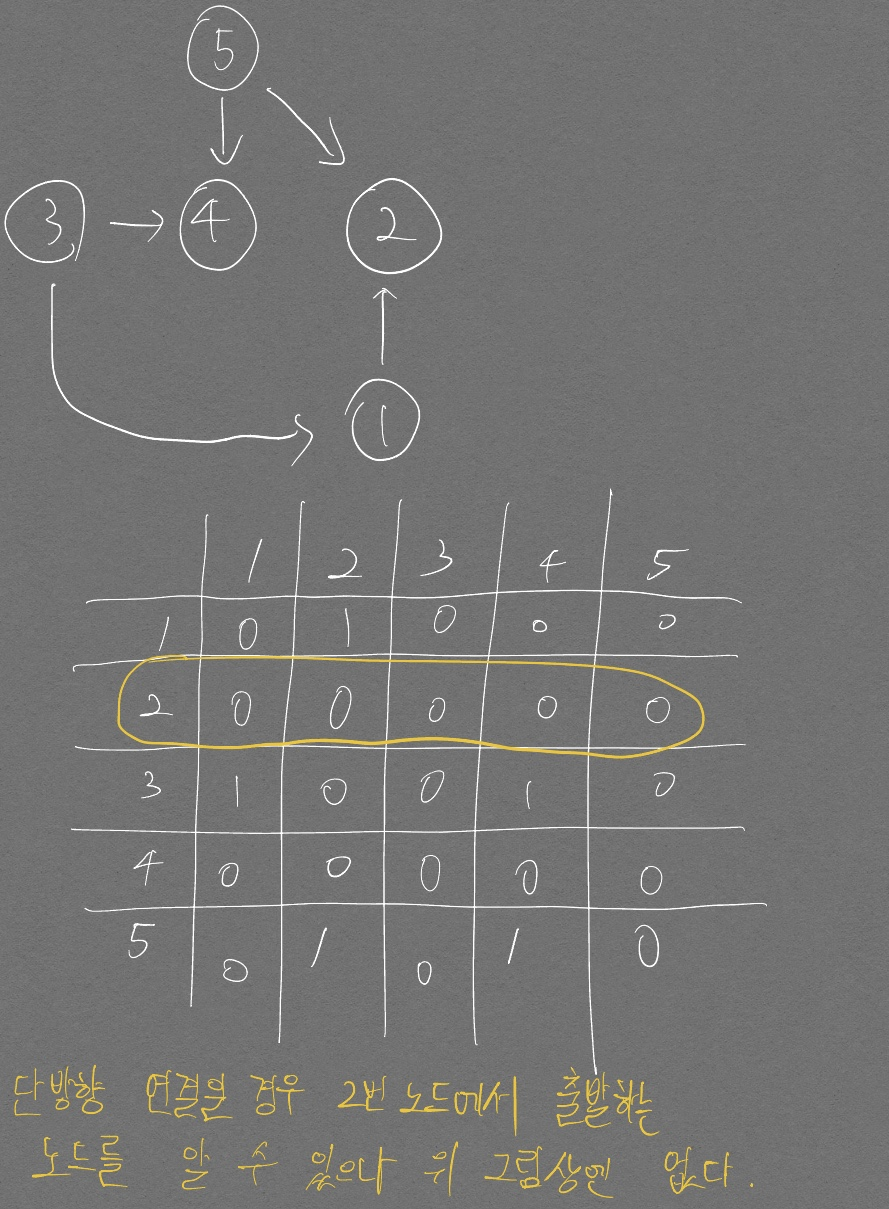 5
3 4 2
1
1 2 3 4 5
1 0 1 0 0 0
2 0 0 0 0 0
3 1 0 0 1 0
4 0 0 0 0 0
5 0 1 0 1 0
단방향 연결일 경우 2번 노드에서 출발하는
노드를 알 수 있으나 위 그림상엔 없다.